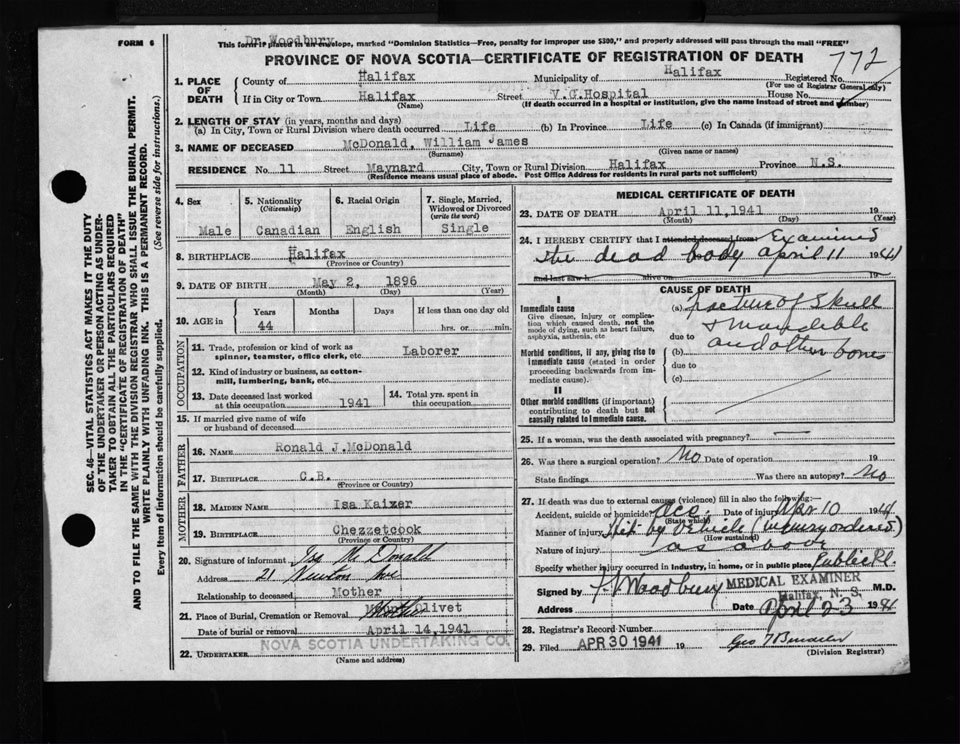 FORM 6
Dr. Woodbury
This form if placed in an envelope, marked "Dominion Statistics—Free, penalty for improper use $300," and properly addressed will pass through the mail "FREE"
PROVINCE OF NOVA SCOTIA—CERTIFICATE OF REGISTRATION OF DEATH
772
1. PLACE OF DEATH
County of Halifax Municipality of Halifax Registered No.
(For use of Registrar General only)
If in City or Town Halifax Street V.G.Hospital House No.
(Name) (If death occurred in a hospital or institution, give the name instead of street and number)
2. LENGTH OF STAY (in years, months and days)
(a) In City, Town or Rural Division where death occurred Life (b) In Province Life (c) In Canada (if immigrant)
3. NAME OF DECEASED McDonald, William James
(Surname) (Given name or names)
RESIDENCE No. 11 Street Maynard City, Town or Rural Division Halifax Province N.S.
(Residence means usual place of abode. Post Office Address for residents in rural parts not sufficient)
4. Sex
Male
5. Nationality
(Citizenship)
Canadian
6. Racial Origin
English
7. Single, Married, Widowed or Divorced
(write the word)
Single
8. BIRTHPLACE Halifax
(Province or Country)
9. DATE OF BIRTH May 2, 1896
(Month) (Day) (Year)
10. AGE in Years Months Days If less than one day old
44 hrs. or min.
OCCUPATION
11. Trade, profession or kind of work as
spinner, teamster, office clerk, etc. Laborer
12. Kind of industry or business, as cotton-
mill, lumbering, bank, etc.
13. Date deceased last worked
at this occupation 1941
14. Total yrs. spent in
this occupation
15. If married give name of wife
or husband of deceased
FATHER
16. NAME Ronald J.McDonald
17. BIRTHPLACE C.B.
(Province or Country)
MOTHER
18. MAIDEN NAME Isa Kaizer
19. BIRTHPLACE Chezzetcook
(Province or Country)
20. Signature of informant Isa McDonald
Address 21 Newton Ave
Relationship to deceased Mother
21. Place of Burial, Cremation or Removal Mount Olivet
Date of burial or removal April 14, 1941
22. UNDERTAKER NOVA SCOTIA UNDERTAKING CO.
(Name and address)
MEDICAL CERTIFICATE OF DEATH
23. DATE OF DEATH April 11, 1941 19
(Month) (Day) (Year)
24. I HEREBY CERTIFY that I attended deceased from Examined
the dead body April 11 1941
and last saw h alive on 19
CAUSE OF DEATH
I
Immediate cause
Give disease, injury or complica-
tion which caused death, not the
mode of dying, such as heart failure,
asphyxia, asthenia, etc
(a) Fracture of Skull
& Mandible
due to
and other bones
Morbid conditions, if any, giving rise to
immediate cause (stated in order
proceeding backwards from im-
mediate cause).
(b)
due to
(c)
II
Other morbid conditions (if important)
contributing to death but not
causally related to immediate cause.
25. If a woman, was the death associated with pregnancy? —
26. Was there a surgical operation? No Date of operation 19
State findings Was there an autopsy? No
27. If death was due to external causes (violence) fill in also the following:—
Accident, suicide or homicide? Acc. Date of injury Apr 10 1941
(State which)
Manner of injury Hit by Vehicle
(How sustained)
Nature of injury as above
Specify whether injury occurred in industry, in home, or in public place Public Pl.
Signed by F. Woodbury M.D.
MEDICAL EXAMINER
Halifax, N. S.
Address Date April 23 1941
28. Registrar's Record Number
29. Filed APR 30 1941 19
(Division Registrar)
SEC. 46—VITAL STATISTICS ACT MAKES IT THE DUTY
OF THE UNDERTAKER OR PERSON ACTING AS UNDER-
TAKER TO OBTAIN ALL THE PARTICULARS REQUIRED
IN THE "CERTIFICATE OF REGISTRATION OF DEATH"
AND TO FILE THE SAME WITH THE DIVISION REGISTRAR WHO SHALL ISSUE THE BURIAL PERMIT.
WRITE PLAINLY WITH UNFADING INK. THIS IS A PERMANENT RECORD.
Every item of information should be carefully supplied. (See reverse side for instructions.)